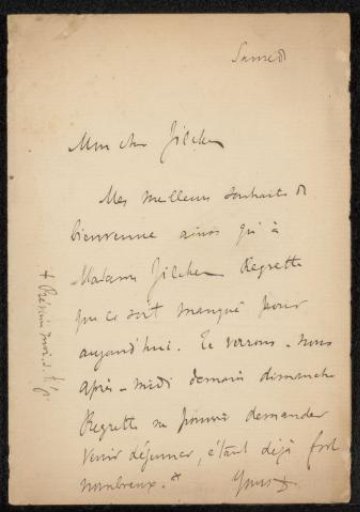 Samedi
Mon cher Zilcken
Mes meilleurs souhaits de
bienvenue ainsi qu'à
Madame Zilcken Regrette
que ce soit manqué pour
aujourd'hui. Te verrons-nous
après-midi demain dimanche
Regrette ne pouvoir demander
venir déjeuner, étant déjà fort
nombreux.
+ Préviens moi